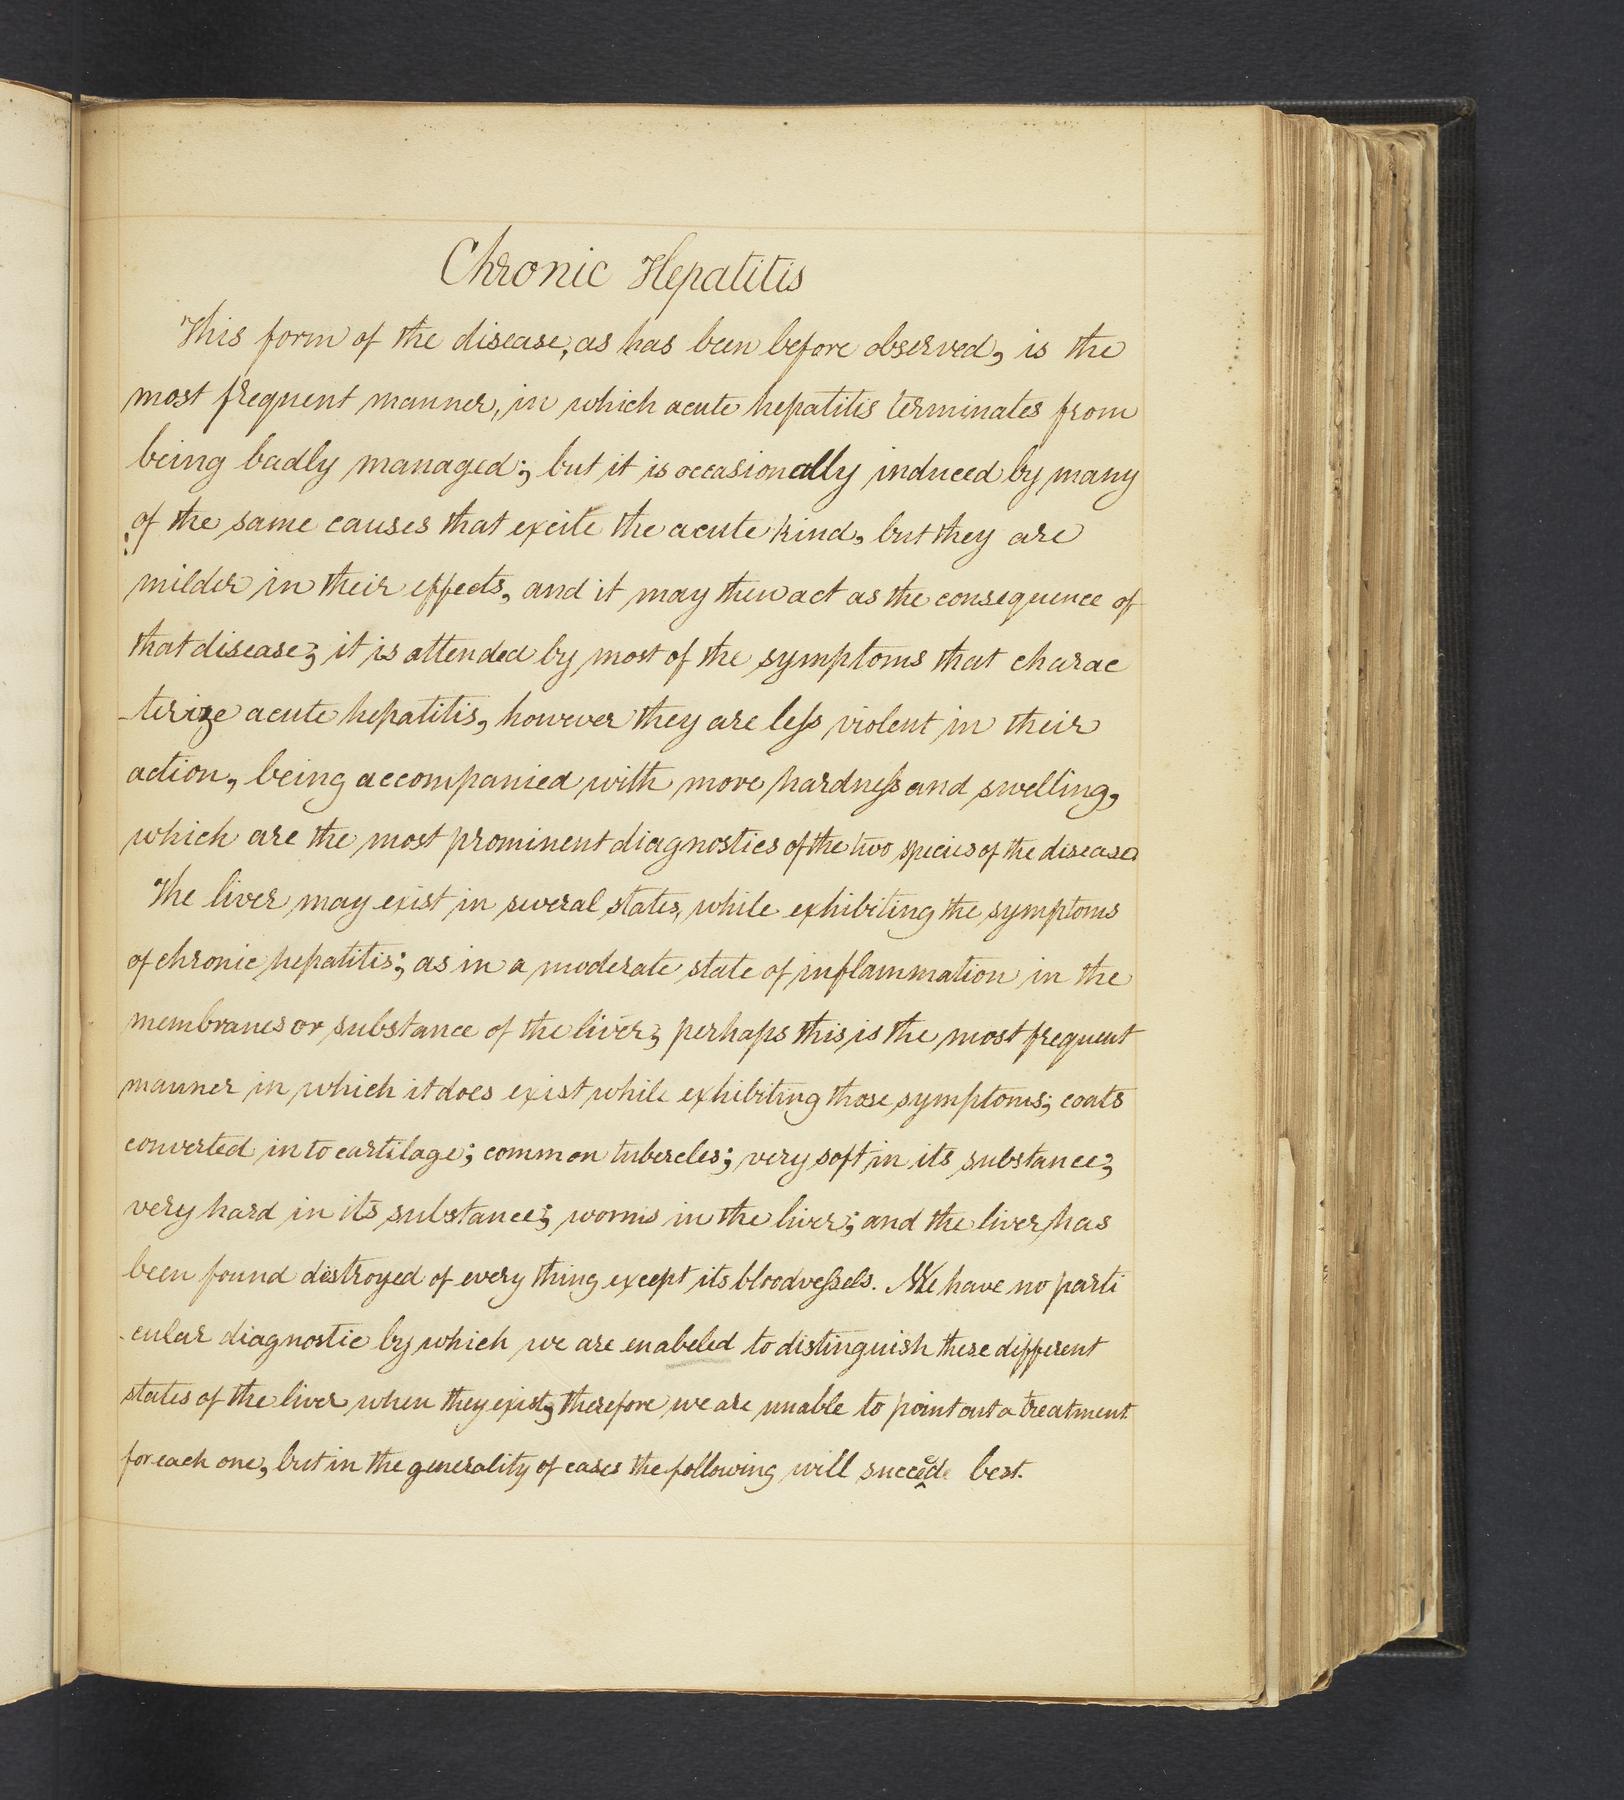 Chronic Hepatitis
This form of the disease, as has been before observed, is the
most frequent manner, in which acute hepatitis terminates from
being badly managed; but it is occasionally induced by many
of the same causes that excite the acute kind, but they are
milder in their effects, and it may then act as the consequence of
that disease; it is attended by most of the symptoms that charac
-terize acute hepatitis, however they are less violent in their
action, being accompanied with more hardness and swelling,
which are the most prominent diagnostics of the two species of the disease
The liver may exist in several states, while exhibiting the symptoms
of chronic hepatitis; as in a moderate state of inflammation in the
membranes or substance of the liver; perhaps this is the most frequent
manner in which it does exist while exhibiting those symptoms; coats
converted into cartilage; common tubercles; very soft in its substance;
very hard in its substance; worms in the liver; and the liver has
been found distroyed of every thing except its bloodvessels. We have no parti
-cular diagnostic by which we are enabeled to distinguish these different
states of the liver when they exist, therefore we are unable to point out a treatment
for each one, but in the generality of cases the following will succeede best.